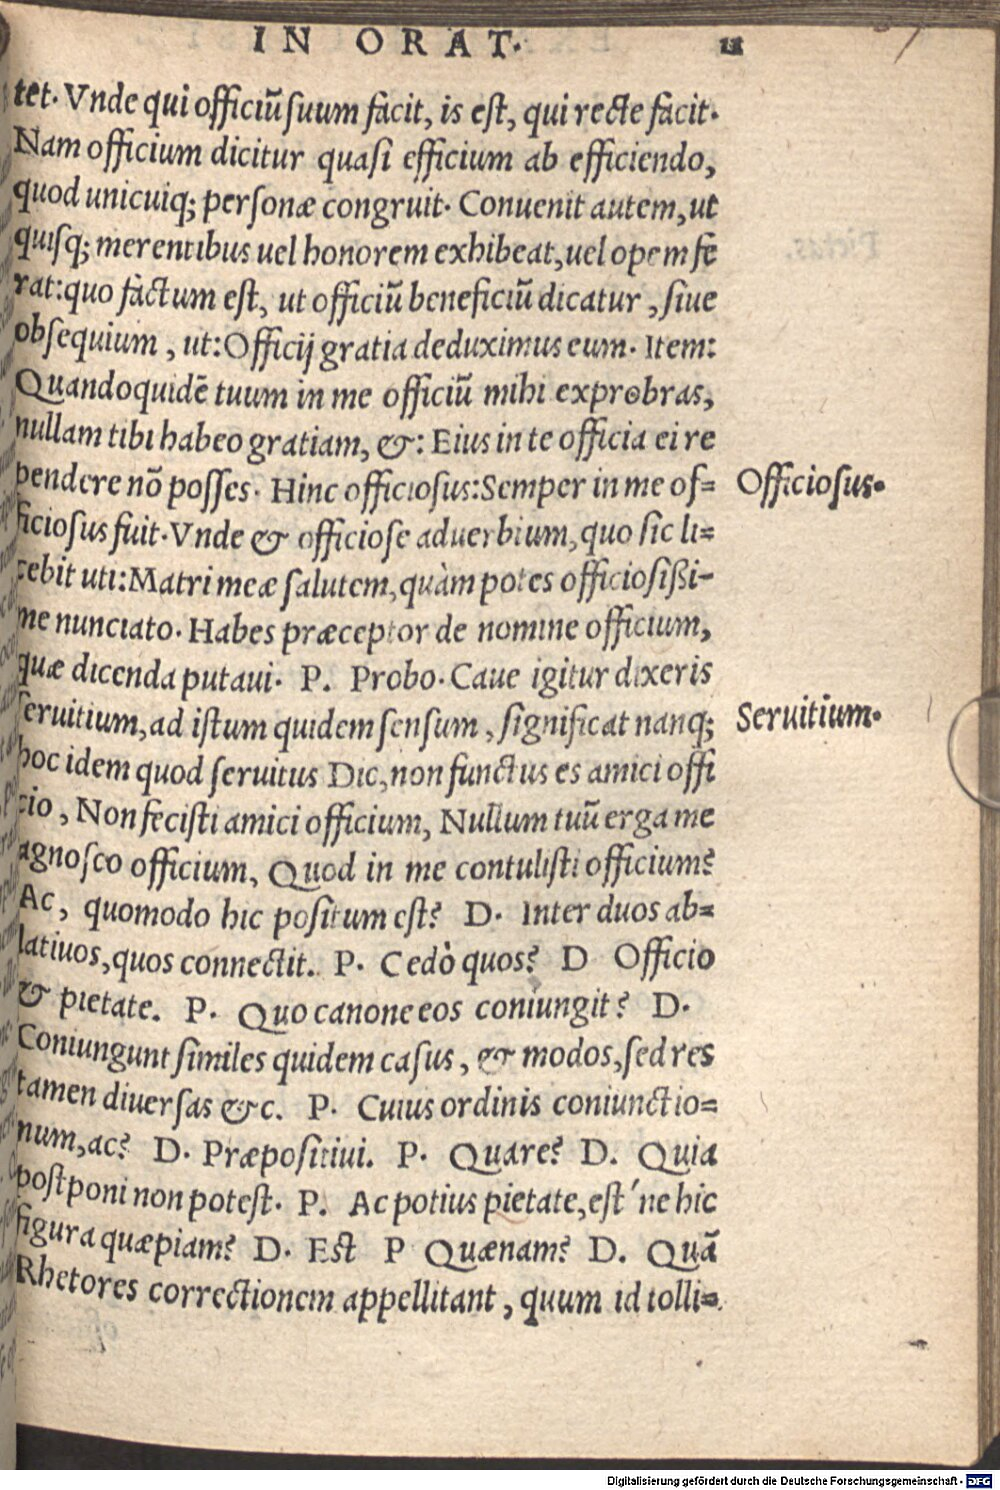 IN ORAT. 11
tet. Vnde qui officiū ſuum facit, is eſt, qui recte facit.
Nam officium dicitur quaſi efficium ab efficiendo,
quod unicuiq; perſonæ congruit. Conuenit autem, ut
quiſq; merentibus uel honorem exhibeat, uel opem fe
rat: quo factum eſt, ut officiū beneficiū dicatur, ſiue
obſequium, ut: Officij gratia deduximus eum. Item:
Quandoquidē tuum in me officiū mihi exprobras,
nullam tibi habeo gratiam, &: Eius in te officia ei re
pendere nō poſſes. Hinc officioſus: Semper in me of=
Officioſus.
ficioſus fuit. Vnde & officioſe aduerbium, quo ſic li=
cebit uti: Matri meæ ſalutem, quàm potes officioſißi-
me nunciato. Habes præceptor de nomine officium,
quæ dicenda putaui. P. Probo. Caue igitur dixeris
ſeruitium, ad iſtum quidem ſenſum, ſignificat nanq;
Seruitium.
hoc idem quod ſeruitus Dic, non functus es amici offi
cio, Non feciſti amici officium, Nullum tuū erga me
agnoſco officium, Quod in me contuliſti officium?
Ac, quomodo hic poſitum eſt? D. Inter duos ab=
latiuos, quos connectit. P. Cedò quos? D Officio
& pietate. P. Quo canone eos coniungit? D.
Coniungunt ſimiles quidem caſus, & modos, ſed res
tamen diuerſas &c. P. Cuius ordinis coniunctio=
num, ac? D. Præpoſitiui. P. Quare? D. Quia
poſtponi non poteſt. P. Ac potius pietate, eſt'ne hic
figura quæpiam? D. Eſt P Quænam? D. Quā
Rhetores correctionem appellitant, quum id tolli=
Digitalisierung gefördert durch die Deutsche Forschungsgemeinschaft - DFG